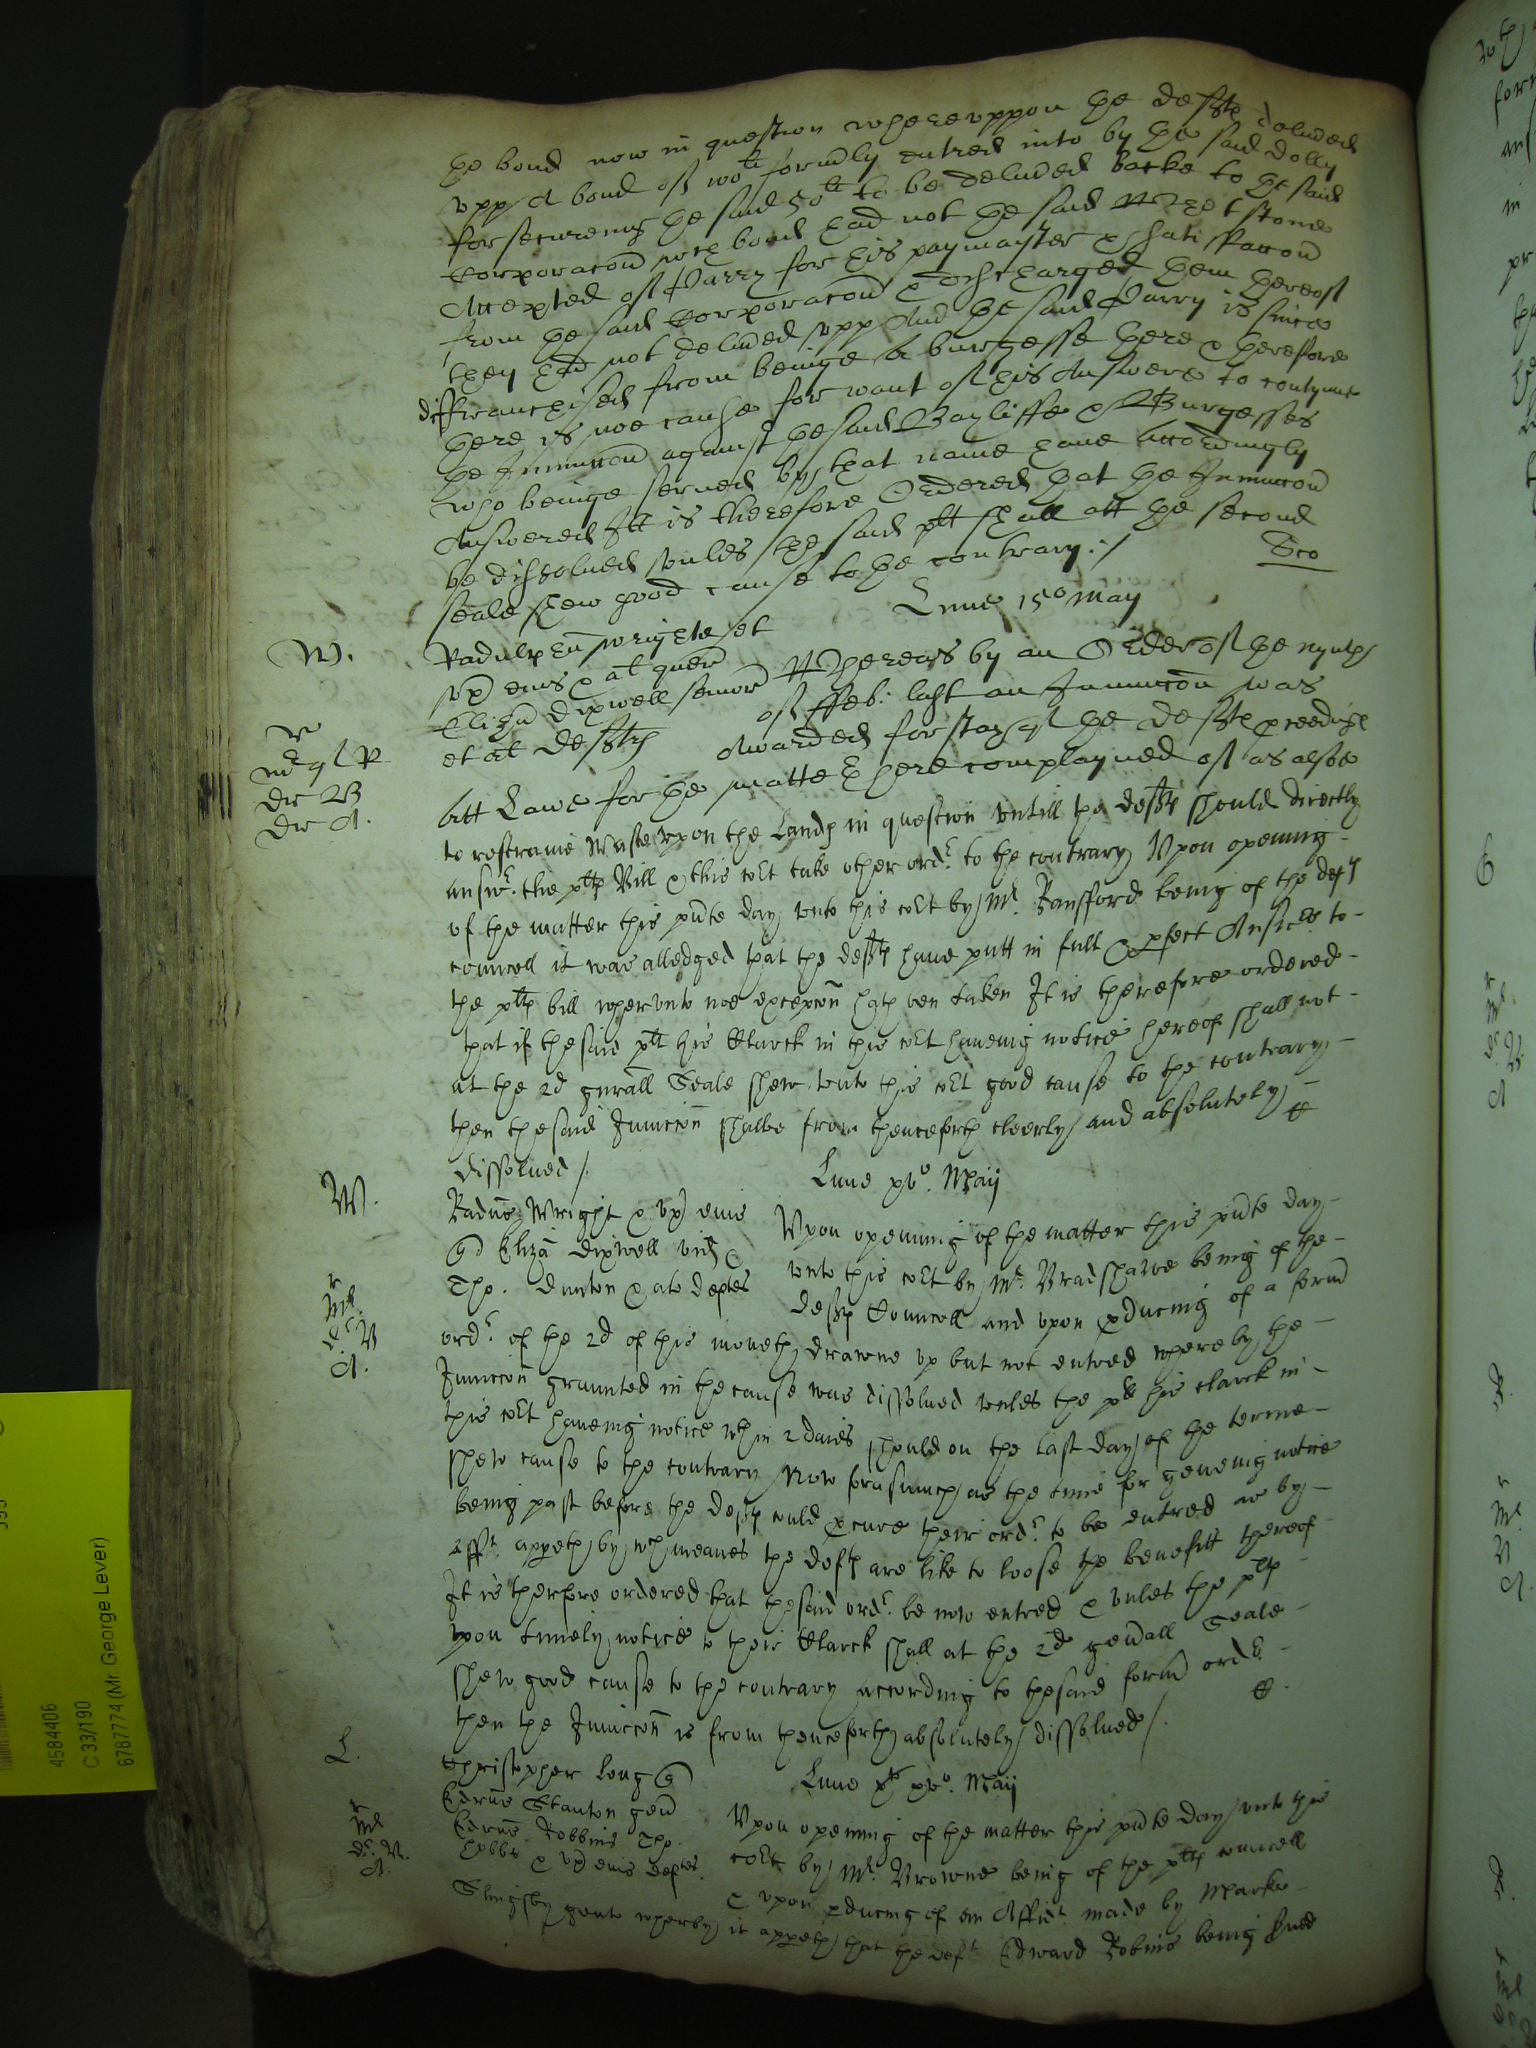 the bond now in question whereuppon the defts deliuered
upp A bond of 100li formerly entred into by the said Dolly
for secureing the said 50li to be deliuered backe to the said
Corporacon wch bond had not the said Whetstone
Accepted of Parry for his paymaster & satisfaccon
from the said Corporacon & discharged them thereof
they had not deliuered upp And the said Parry is since
disfranchised from beinge a burgesse there & therefore
there is noe cause for want of his Answere to contynue
the Iniunccon against the said Bayliffe & Burgesses
who beinge serued by that name haue accordingly
Answered Itt is therefore Ordered that the Iniunccon
be dissolued vnles the said plt shall att the second
seale shew good cause to the contrary :/
Lune 15o May
W.
Radulphus Wrighte et
vx eius & al quer
Eliza Dixwell senior
et al defts
Whereas by an Order of the nynth
of Feb: last an Iniunccon was
Awarded for stay of the defts proceedings
att Lawe for the matters there complayned of as alsoe
to restraine Waste vpon the Lands in question vntill the defts should directly
answr. the plts Bill & this cort take other ordr. to the contrary Vpon opening
of the matter this pnte day vnto this cort by Mr. Ransford being of the defts
councell it was alledged that the defts haue putt in full & pfect Answer to
the plts bill whervnto noe excepcon hath ben taken It is therefore ordered
that if the said plt his Clarck in this cort haueing notice hereof shall not
at the 2d gnrall Seale shew vnto this cort good cause to the contrary
then the said Iniuccon shalbe from thenceforth cleerly and absolutely
dissolued /.
Lune xvo. Maij
W.
Radus Wright & vx eius
Eliza Dixwell vid &
Tho. Denton & als deftes
Vpon opening of the matter this pnte day
vnto this cort by Mr. Bradshawe being of the
defts Councell and vpon pducing of a form
ordr. of the 2d of this moneth drawne vp but not entred whereby the
Iniuccon graunted in the cause was dissolued vnles the plts his clarck in
this cort haueing notice wthin 2 daies should on the last day of the terme
shew cause to the contrary Now forasmuch as the time for geueing notice
being past before the defts could pcure their ordr. to be entred as by
afft. appeth by wch meanes the defts are like to loose the benefitt thereof
It is therfore ordered that the said ordr. be now entred & vnles the plts
vpon timely notice to their Clarck shall at the 2d generall Seale
shew good cause to the contrary according to the said form order
then the Iniuccon is from thenceforth absolutely dissolued /.
L.
Christopher Long
Edrus Stanton gen
Edrus Robbins Tho.
Hobbs & vx eius deftes.
Lune xvo. Maij
Vpon opening of the matter this pnte day vnto this
cort by Mr. Browne being of the plts councell
& vpon pducing of an Affidt. made by Marke
Slingsby gent wherby it appeth that the deft Edward Robins being sued
4584406
C 33/190
6787774 (Mr. George Lever)